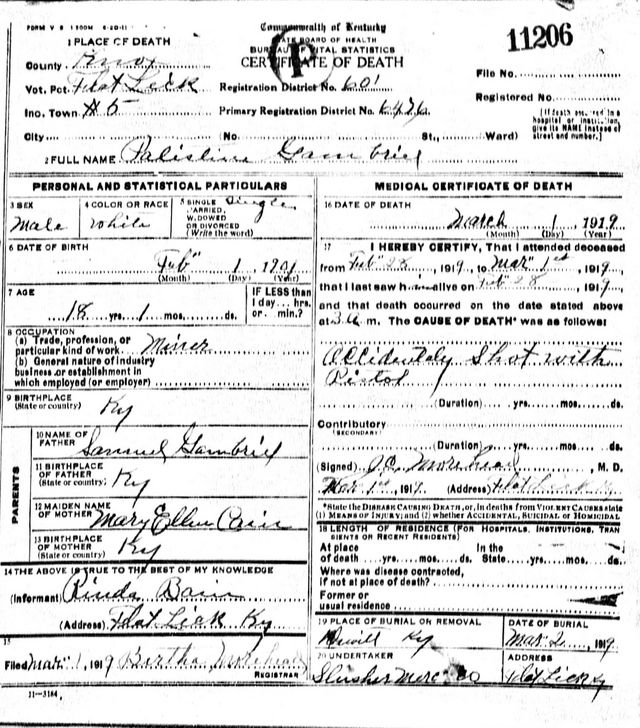 FORM V S 1 500M 6-20-11
Commonwealth of Kentucky
STATE BOARD OF HEALTH
BUREAU OF VITAL STATISTICS
CERTIFICATE OF DEATH
11206
1 PLACE OF DEATH
County Knox
Vot. Pct. Flat Lick
Registration District No. 601
File No.
Inc. Town #5
Primary Registration District No.
Registered No.
City (No. St., Ward)
(If death occurred in a hospital or institution, give its NAME instead of street and number.)
2 FULL NAME Palistine Gambriel
PERSONAL AND STATISTICAL PARTICULARS
3 SEX
Male
4 COLOR OR RACE
White
5 SINGLE, MARRIED, WIDOWED OR DIVORCED (Write the word)
Single
6 DATE OF BIRTH
Feb 1 1901
(Month) (Day) (Year)
7 AGE
18 yrs. 1 mos. ds.
IF LESS than 1 day... hrs. or min.?
8 OCCUPATION
(a) Trade, profession, or particular kind of work Miner
(b) General nature of industry business or establishment in which employed (or employer)
9 BIRTHPLACE
(State or country) Ky
PARENTS
10 NAME OF FATHER Samuel Gambriel
11 BIRTHPLACE OF FATHER (State or country) Ky
12 MAIDEN NAME OF MOTHER Mary Ellen Cain
13 BIRTHPLACE OF MOTHER (State or country) Ky
14 THE ABOVE IS TRUE TO THE BEST OF MY KNOWLEDGE
(Informant) Bain
(Address) Flat Lick Ky
15
Filed Mar 1, 1919 Bertha Morehead
REGISTRAR
11-3184
MEDICAL CERTIFICATE OF DEATH
16 DATE OF DEATH
March 1 1919
(Month) (Day) (Year)
17 I HEREBY CERTIFY, That I attended deceased
from Feb" 28, 1919, to Mar" 1st, 1919,
that I last saw h alive on Feb" 28, 1919,
and that death occurred on the date stated above
at 3 a m. The CAUSE OF DEATH* was as follows:
Accidentaly Shot with
Pistol
(Duration) yrs. mos. ds.
Contributory
(SECONDARY)
(Duration) yrs. mos. ds.
(Signed) Morehead, M. D.
Mar 1st, 1919 (Address) Flat Lick Ky
*State the DISEASE CAUSING DEATH, or, in deaths from VIOLENT CAUSES state (1) MEANS OF INJURY; and (2) whether ACCIDENTAL, SUICIDAL or HOMICIDAL
18 LENGTH OF RESIDENCE (FOR HOSPITALS, INSTITUTIONS, TRANSIENTS OR RECENT RESIDENTS)
At place of death yrs. mos. ds. In the State yrs. mos. ds.
Where was disease contracted, if not at place of death?
Former or usual residence
19 PLACE OF BURIAL OR REMOVAL
Ky
DATE OF BURIAL
Mar 2, 1919
20 UNDERTAKER
Slusher Merc Co
ADDRESS
Flat Lick Ky